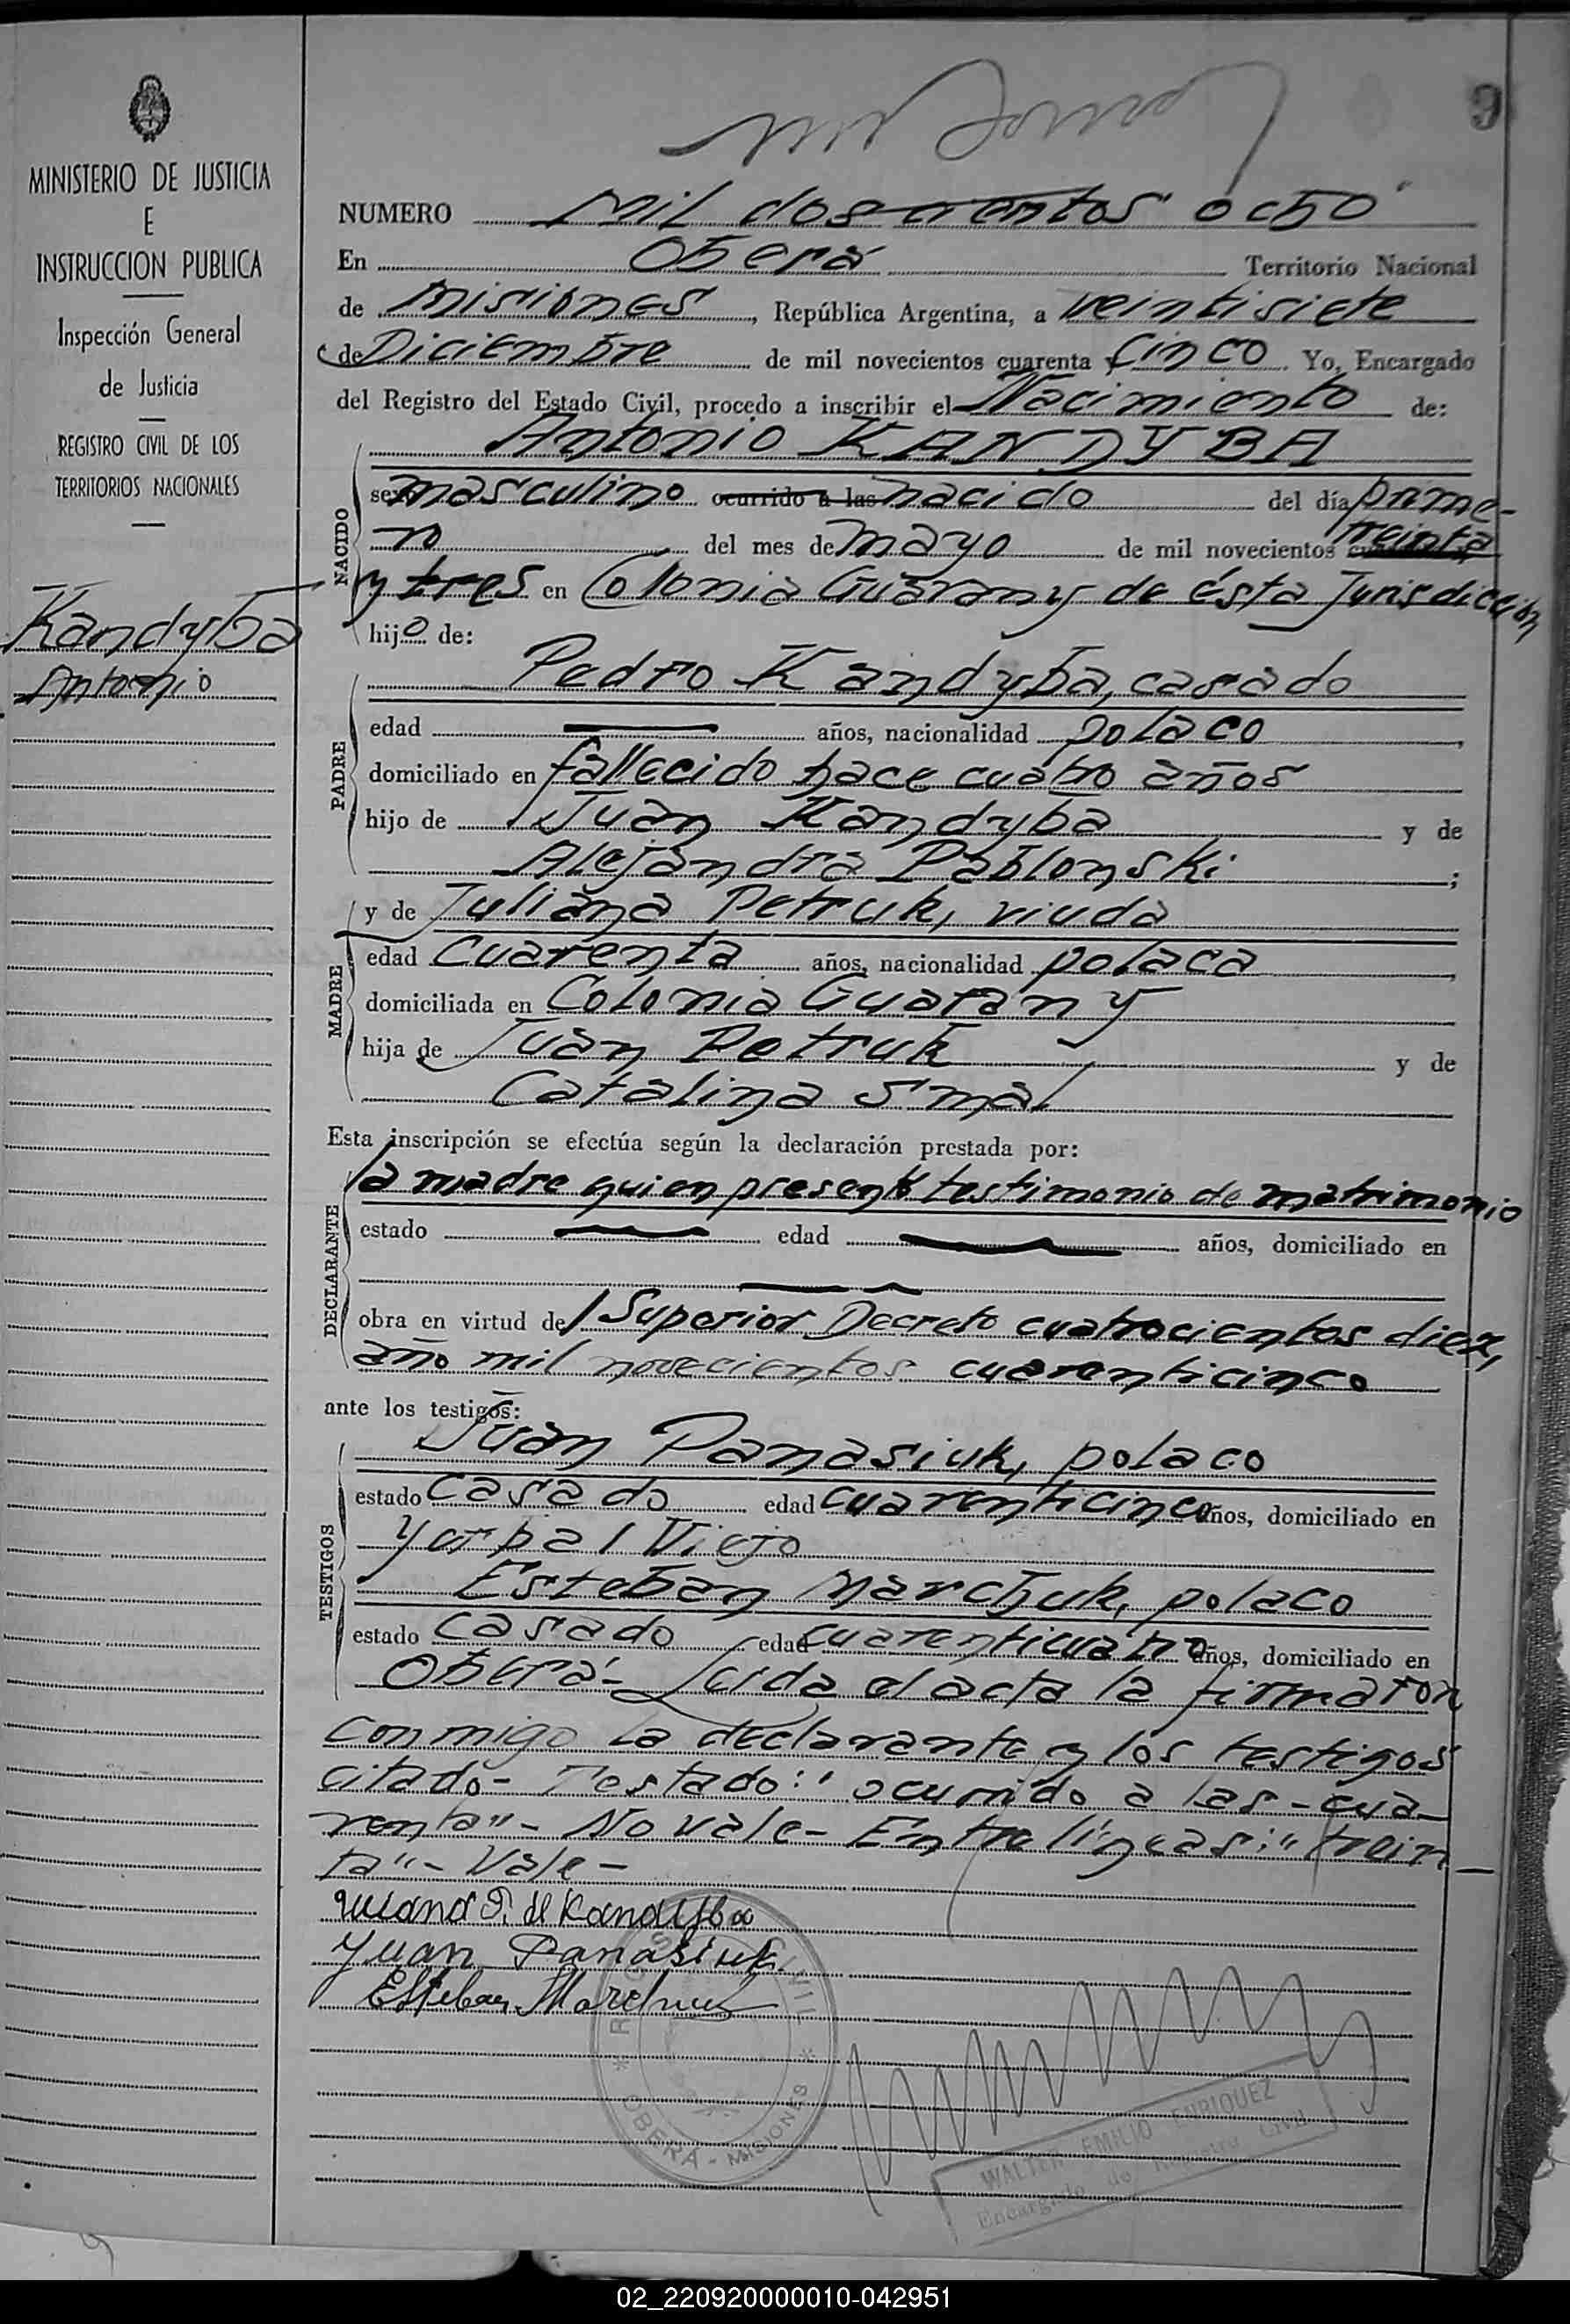 9
MINISTERIO DE JUSTICIA
E
INSTRUCCION PUBLICA
Inspección General
de Justicia
REGISTRO CIVIL DE LOS
TERRITORIOS NACIONALES
Kandyba
Antonio
NUMERO mil doscientos ocho
En Oberá Territorio Nacional
de misiones, República Argentina, a veintisiete
de Diciembre de mil novecientos cuarenta y cinco Yo, Encargado
del Registro del Estado Civil, procedo a inscribir el Nacimiento de:
Antonio KANDYBA
NACIDO
sexo masculino ocurrido a las nacido del día prime-
ro del mes de mayo de mil novecientos treinta
y tres en Colonia Guarany de ésta Jurisdicción
hijo de:
PADRE
Pedro Kandyba, casado
edad años, nacionalidad polaco
domiciliado en fallecido hace cuatro años
hijo de Juan Kandyba y de
Alejandra Pablonski;
MADRE
y de Juliana Petruk, viuda
edad cuarenta años, nacionalidad polaca
domiciliada en Colonia Guarany
hija de Juan Petruk y de
Catalina Smal
Esta inscripción se efectúa según la declaración prestada por:
DECLARANTE
la madre quien presentó testimonio de matrimonio
estado edad años, domiciliado en
obra en virtud del Superior Decreto cuatrocientos diez,
año mil novecientos cuarenticinco
ante los testigos:
TESTIGOS
Juan Panasiuk, polaco
estado casado edad cuarenticinco años, domiciliado en
Yerbal Viejo
Esteban Marchuk, polaco
estado casado edad cuarenticuatro años, domiciliado en
Oberá- Leida el acta la firmaron
conmigo la declarante y los testigos
citado- Testado: "ocurrido a las - cua-
renta"- No vale- Entre líneas: "trein
ta"- Vale-
Juliana P. de Kandyba
Juan Panasiuk
Esteban Marchuk
REGISTRO CIVIL
* OBERA - MISIONES *
WALTER EMILIO ENRIQUEZ
Encargado de Registro Civil
02_220920000010-042951